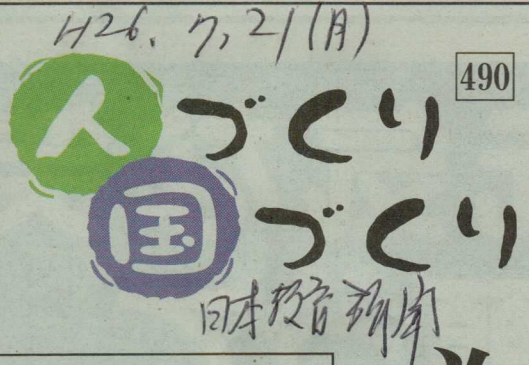 H26.7.21(月)
490
人づくり
国づくり
日本教育新聞